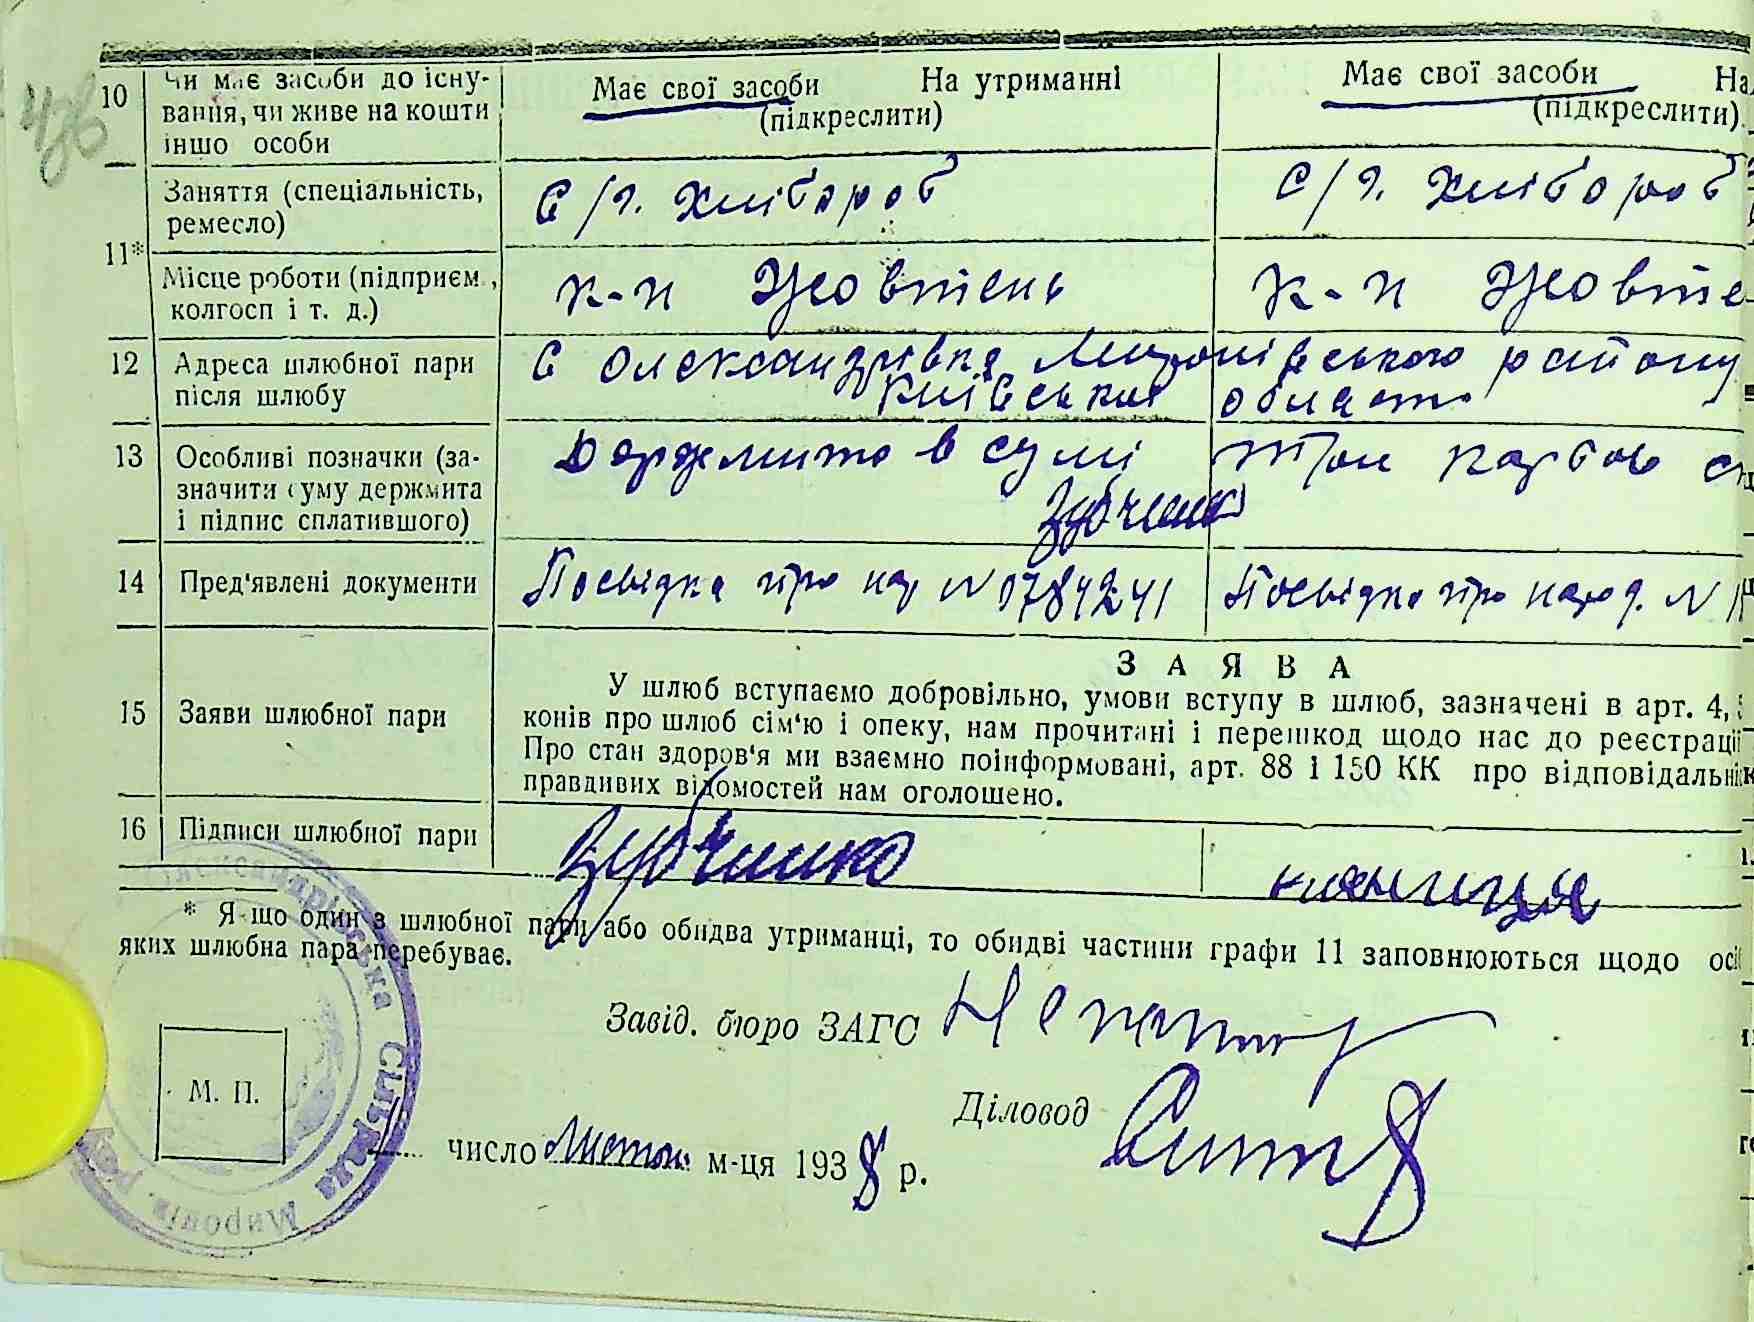 10 Чи має засоби до існу- Має свої засоби На утриманні Має свої засоби На
вання, чи живе на кошти (підкреслити) (підкреслити)
іншо особи
Заняття (спеціальність, С/г. Хлібороб С/г. Хлібороб
ремесло)
11*
Місце роботи (підприєм., к-п Жовтень к-п Жовте
колгосп і т. д.)
12 Адреса шлюбної пари С Олександрівка Миронівського району
після шлюбу Київської області
13 Особливі позначки (за- Держмито в сумі три карбов
значити суму держмита Зубченко
і підпис сплатившого)
14 Пред'явлені документи Посвідка про нар N Посвідка про народ. N
З А Я В А
У шлюб вступаємо добровільно, умови вступу в шлюб, зазначені в арт. 4,
15 Заяви шлюбної пари конів про шлюб сім'ю і опеку, нам прочитані і перешкод щодо нас до реєстрації
Про стан здоров'я ми взаємно поінформовані, арт. 88 і 150 КК про відповідальні
правдивих відомостей нам оголошено.
16 Підписи шлюбної пари Зубченко
* Я що один з шлюбної пари або обидва утриманці, то обидві частини графи 11 заповнюються щодо осі
яких шлюбна пара перебуває.
Завід. бюро ЗАГС
М. П.
Діловод
число Лютого м-ця 1938 р.
Олександрівська сільрада Миронів. рай